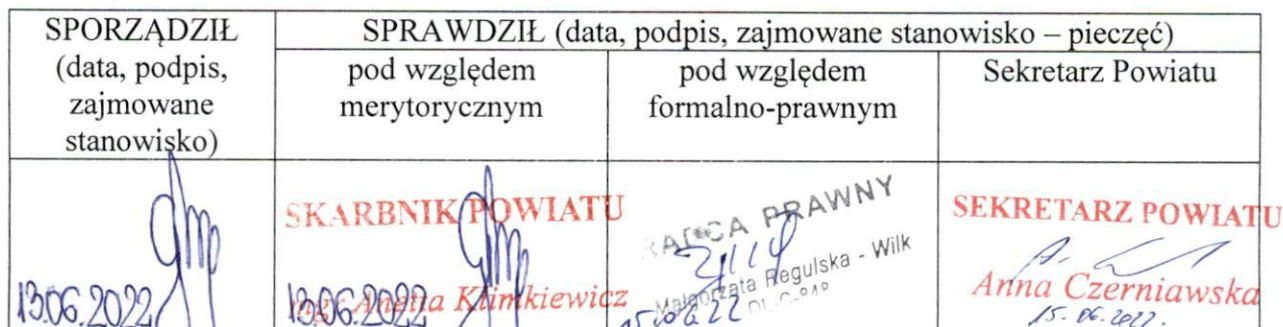 SPORZĄDZIŁ
(data, podpis,
zajmowane
stanowisko)
SPRAWDZIŁ (data, podpis, zajmowane stanowisko – pieczęć)
pod względem
merytorycznym
pod względem
formalno-prawnym
Sekretarz Powiatu
13.06.2022
SKARBNIK POWIATU
mgr Anetta Klimkiewicz
13.06.2022
RADCA PRAWNY
Małgorzata Regulska - Wilk
SEKRETARZ POWIATU
Anna Czerniawska
15.06.2022.